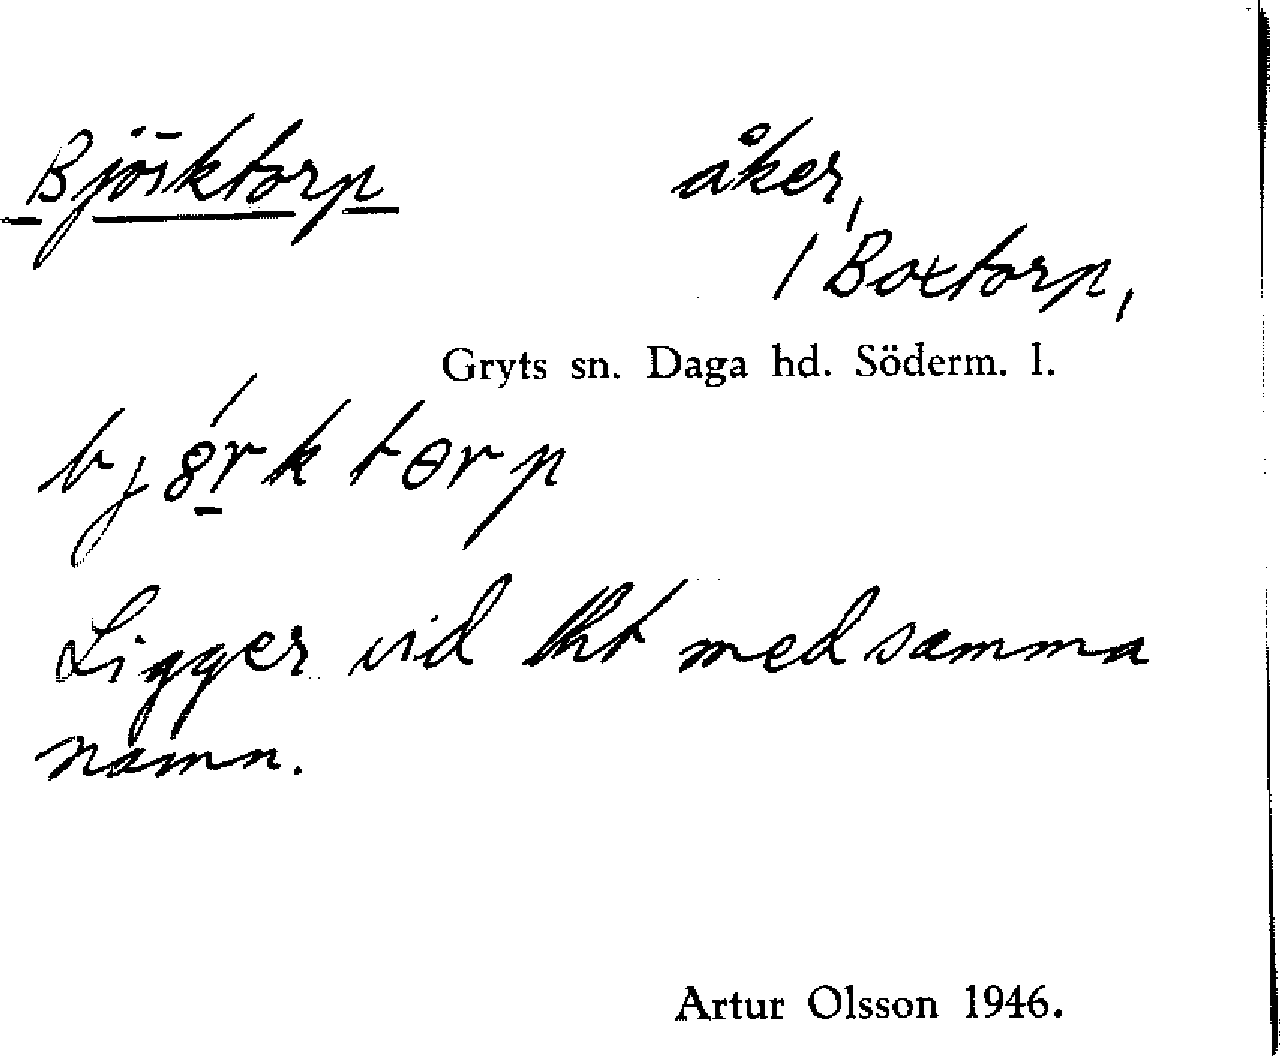 Björktorp åker,
/ Boxtorp,
Gryts sn. Daga hd. Söderm. l.
bjȣ́rktɵrp
Ligger vid lht med samma
namn.
Artur Olsson 1946.